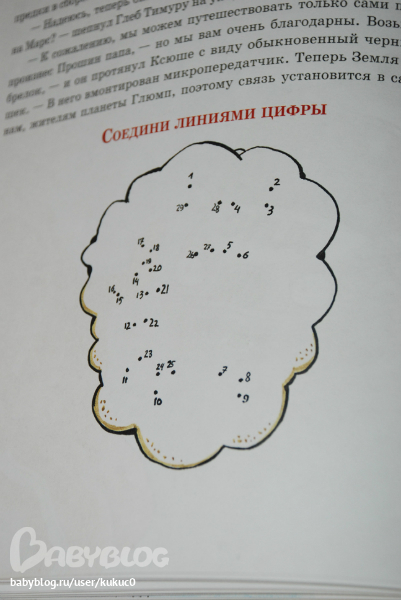 предки в сбор
— Надеюсь, теперь
на Марс? — шепнул Глеб Тимуру на
— К сожалению, мы можем путешествовать только сами п
произнес Прошин папа, — но мы вам очень благодарны. Возь
брелок, — и он протянул Ксюше с виду обыкновенный черн
шек. — В него вмонтирован микропередатчик. Теперь Земля
нам, жителям планеты Глюмп, поэтому связь установится в са
СОЕДИНИ ЛИНИЯМИ ЦИФРЫ
1 2
29 28 4 3
17 18
26 27 5 6
19
14 20
16 15 13 21
12 22
23
11 24 25 7 8
10 9
BABYBLOG
babyblog.ru/user/kukuc0